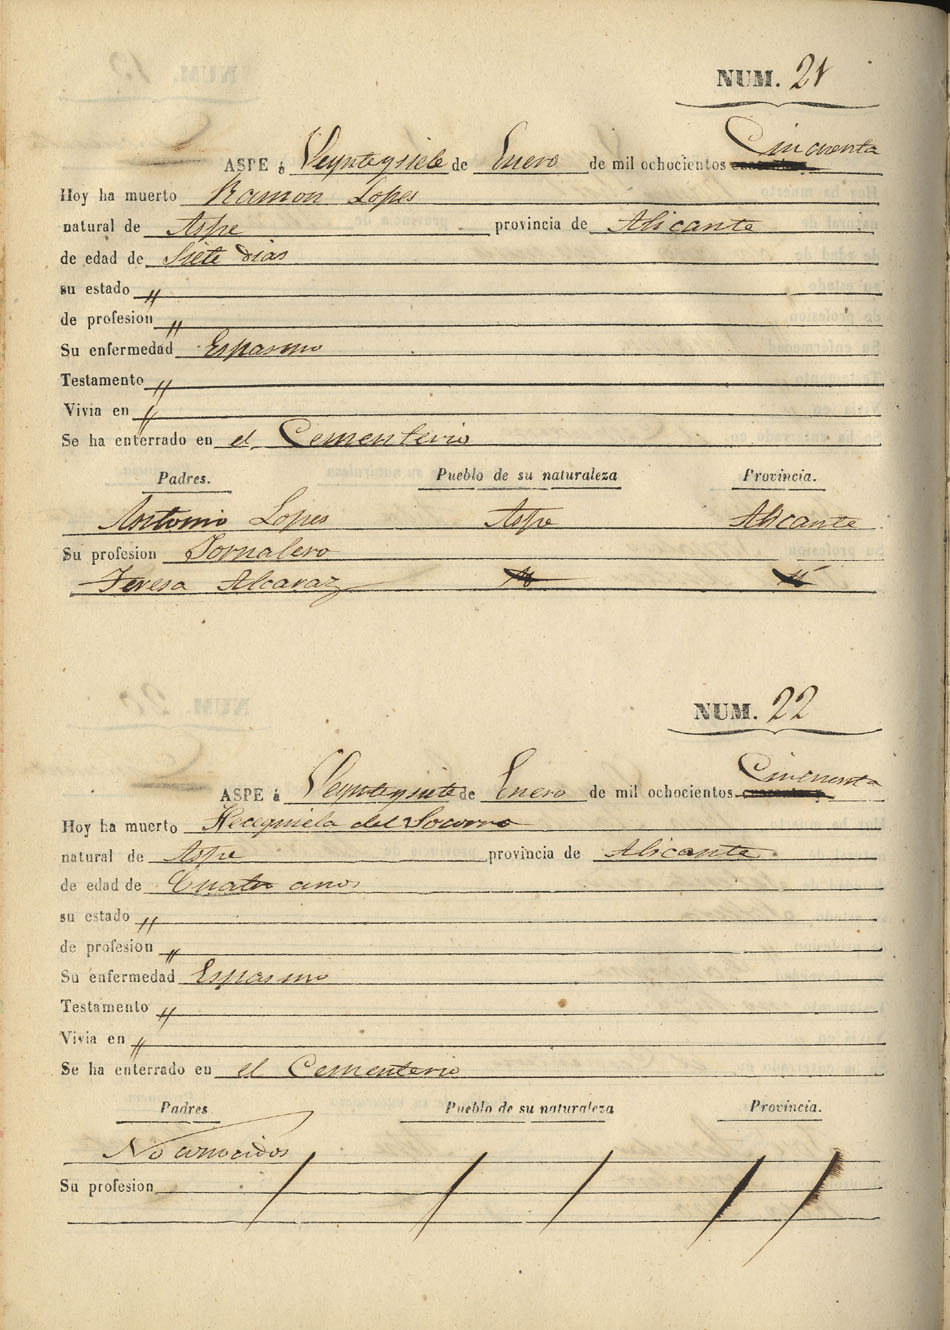 NUM. 21
ASPE á Veynteysiete de Enero de mil ochocientos Cincuenta
Hoy ha muerto Ramon Lopes
natural de Aspe provincia de Alicante
de edad de Siete dias
su estado "
de profesion "
Su enfermedad Espasmo
Testamento "
Vivia en "
Se ha enterrado en el Cementerio
Padres. Pueblo de su naturaleza Provincia.
Antonio Lopes Aspe Alicante
Su profesion Jornalero
Teresa Alcaraz
NUM. 22
ASPE á Veynteysiete de Enero de mil ochocientos Cincuenta
Hoy ha muerto Hecequiela del Socorro
natural de Aspe provincia de Alicante
de edad de Cuatro anos
su estado "
de profesion "
Su enfermedad Espasmo
Testamento "
Vivia en "
Se ha enterrado en el Cementerio
Padres Pueblo de su naturaleza Provincia.
No conocidos
Su profesion